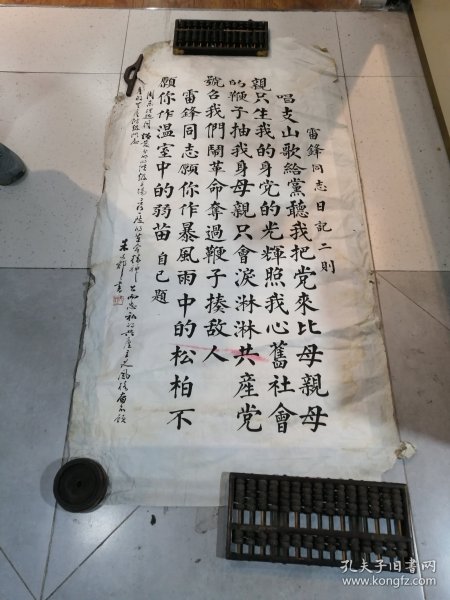 雷鋒同志日記二則
唱支山歌給黨聽我把党來比母親母
親只生我的身党的光輝照我心舊社會
的鞭子抽我身母親只會淚淋淋共產党
號召我們鬧革命奪過鞭子揍敵人
雷鋒同志願你作暴風雨中的松柏不
願你作温室中的弱苗 自己題
孔夫子旧书网
www.kongfz.com